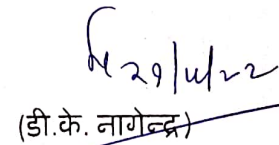 29/4/22
(डी.के. नागेन्द्र)